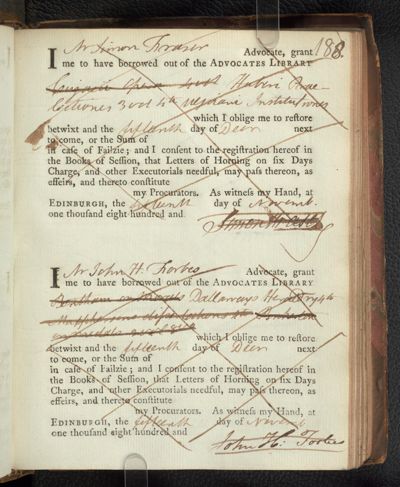 188.
I Mr Simon Fraser Advocate, grant
me to have borrowed out of the ADVOCATES LIBRARY
Opera Huberi Prae-
lectiones 3 vol 4to Institutiones
which I oblige me to restore
betwixt and the fifteenth day of Decr next
to come, or the Sum of
in case of Failzie; and I consent to the registration hereof in
the Books of Session, that Letters of Horning on six Days
Charge, and other Executorials needful, may pass thereon, as
effeirs, and thereto constitute
my Procurators. As witness my Hand, at
EDINBURGH, the day of Novemb.
one thousand eight hundred and
Simon Fraser
I Mr John H. Forbes Advocate, grant
me to have borrowed out of the ADVOCATES LIBRARY
Bentham Dallaways Heraldry 4to
which I oblige me to restore
betwixt and the fifteenth day of Decr next
to come, or the Sum of
in case of Failzie; and I consent to the registration hereof in
the Books of Session, that Letters of Horning on six Days
Charge, and other Executorials needful, may pass thereon, as
effeirs, and thereto constitute
my Procurators. As witness my Hand, at
EDINBURGH, the fifteenth day of Novemb.
one thousand eight hundred and
John H. Forbes